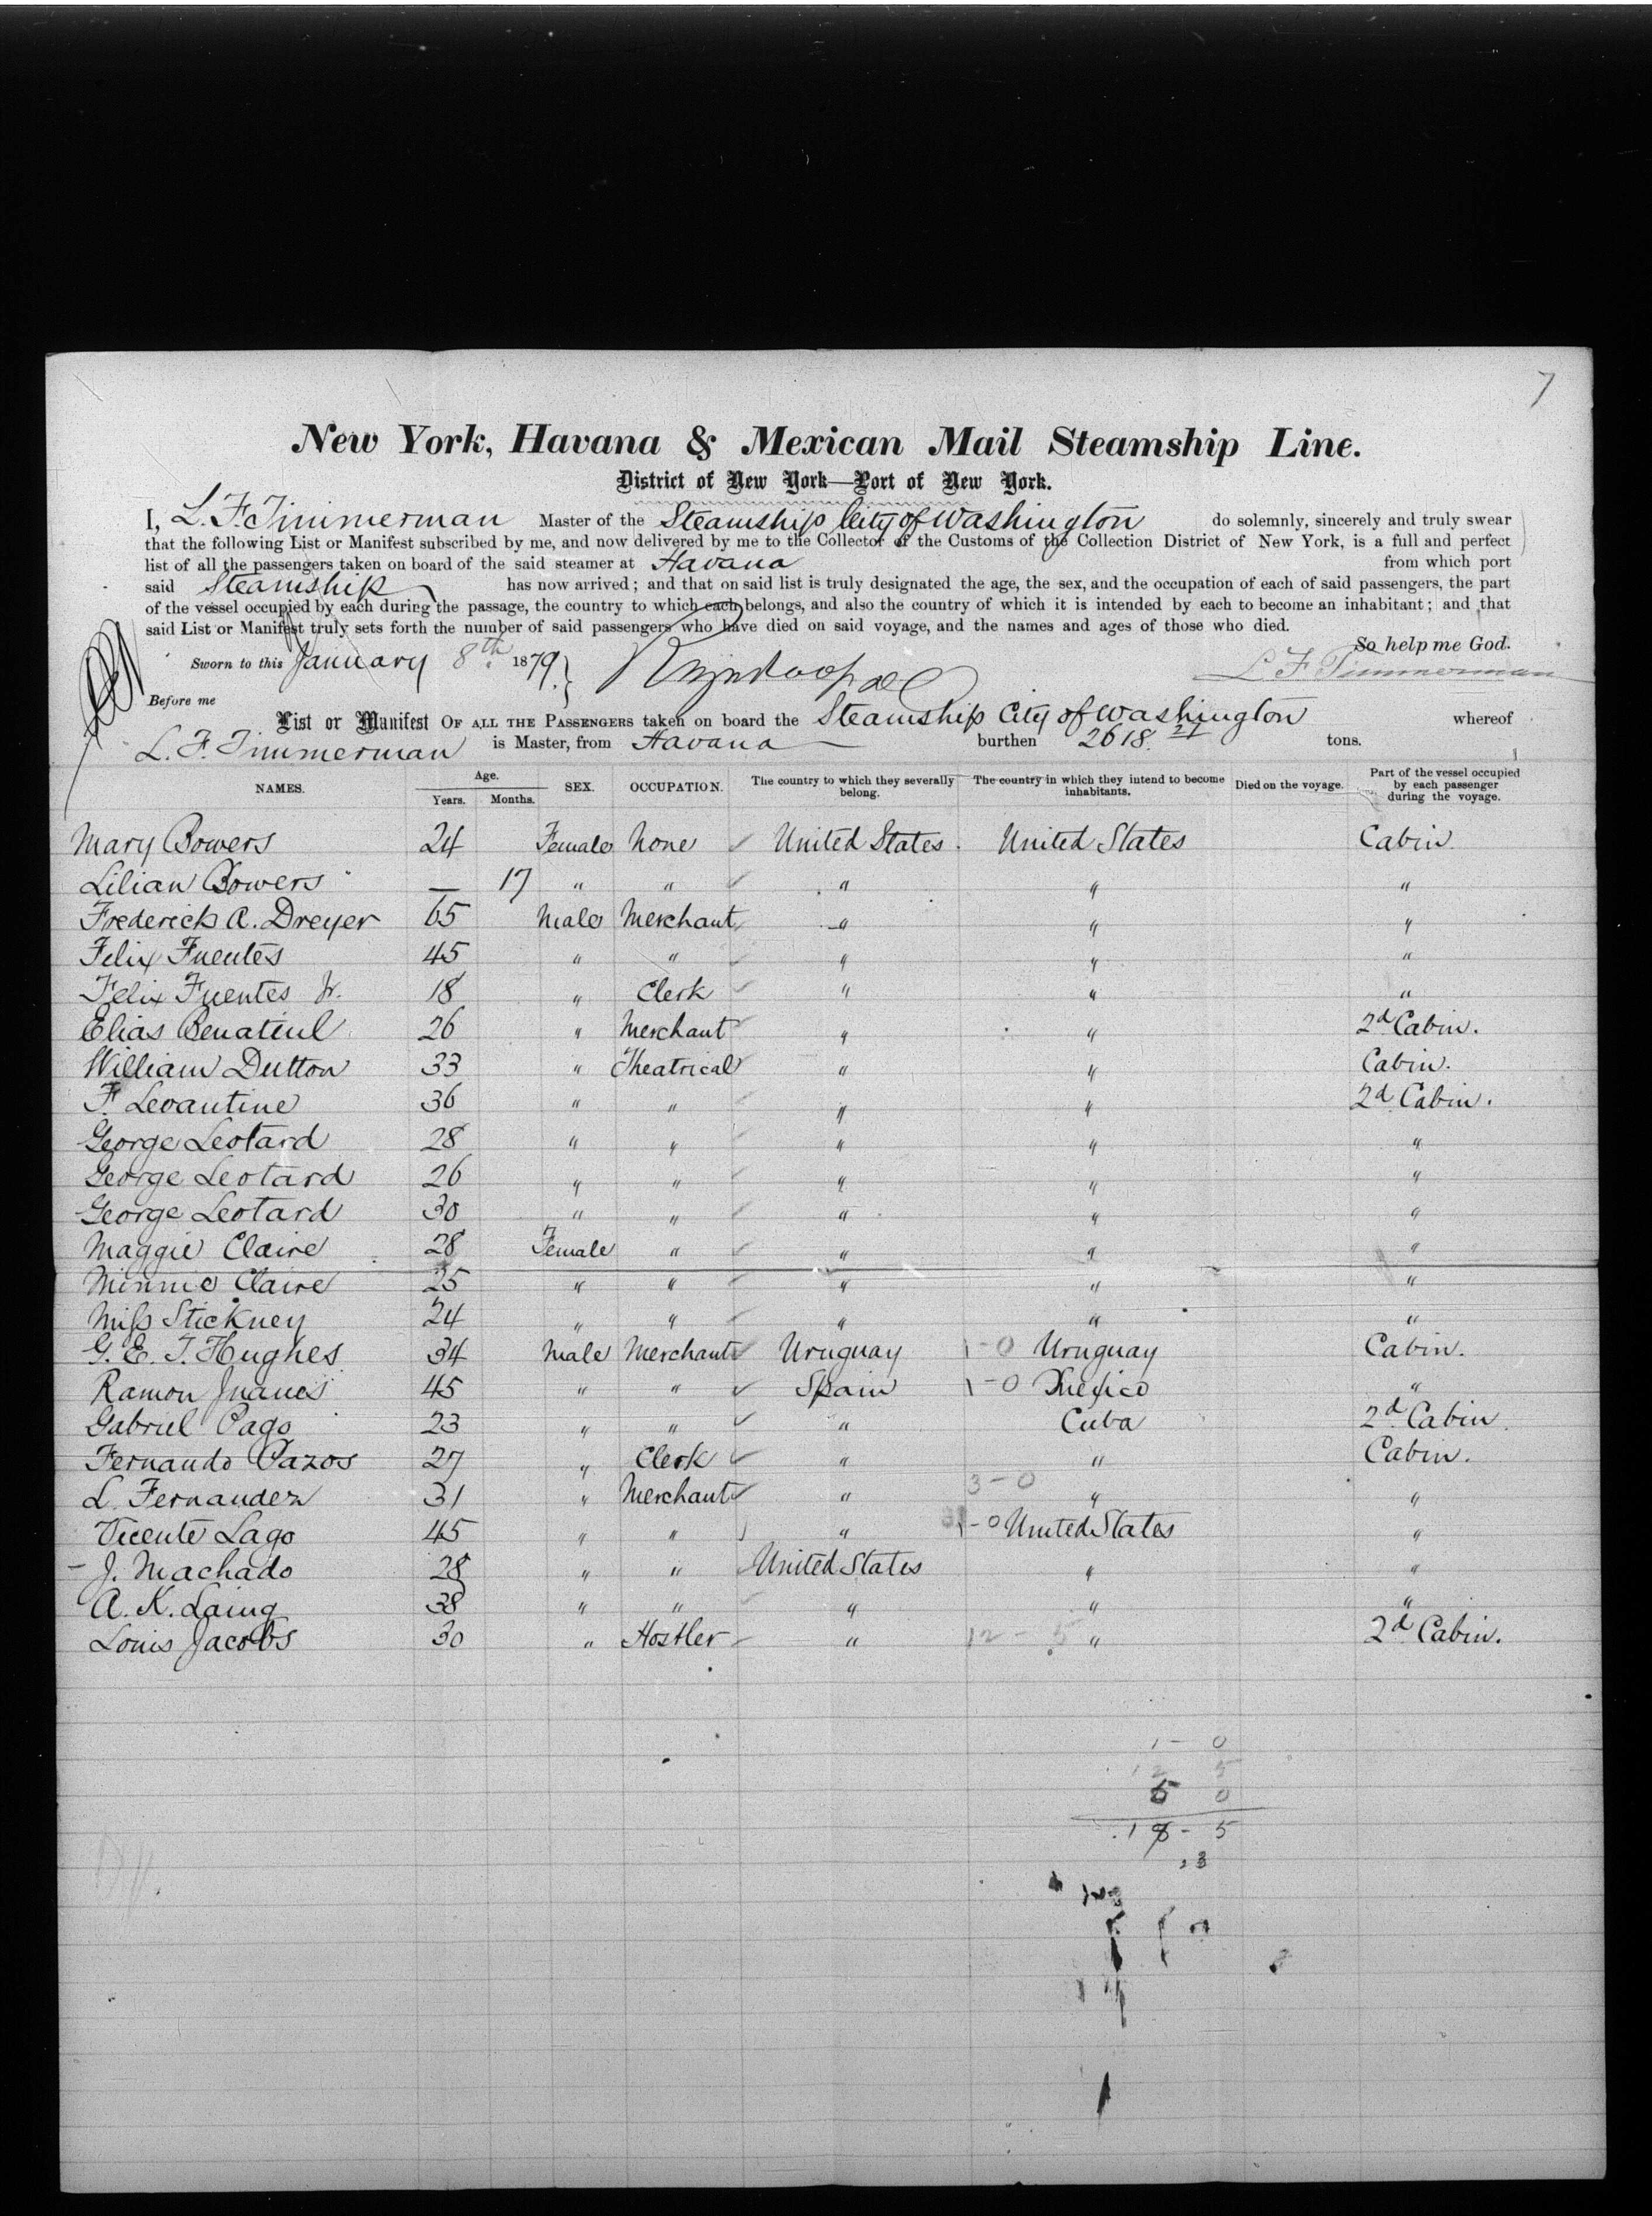 7
New York, Havana & Mexican Mail Steamship Line.
District of New York—Port of New York.
I, L. F. Timmerman Master of the Steamship City of Washington do solemnly, sincerely and truly swear
that the following List or Manifest subscribed by me, and now delivered by me to the Collector of the Customs of the Collection District of New York, is a full and perfect
list of all the passengers taken on board of the said steamer at Havana from which port
said Steamship has now arrived; and that on said list is truly designated the age, the sex, and the occupation of each of said passengers, the part
of the vessel occupied by each during the passage, the country to which each belongs, and also the country of which it is intended by each to become an inhabitant; and that
said List or Manifest truly sets forth the number of said passengers who have died on said voyage, and the names and ages of those who died.
So help me God.
Sworn to this January 8th. 1879. L. F. Timmerman
Before me
List or Manifest OF ALL THE PASSENGERS taken on board the Steamship City of Washington whereof
L. F. Timmerman is Master, from Havana burthen 2618. 21 tons.
NAMES. Age. Years. Months. SEX. OCCUPATION. The country to which they severally belong. The country in which they intend to become inhabitants. Died on the voyage. Part of the vessel occupied by each passenger during the voyage.
Mary Bowers 24 Female None United States United States Cabin
Lilian Bowers — 17 " " " " "
Frederick A. Dreyer 65 Male Merchant " " "
Felix Fuentes 45 " " " " "
Felix Fuentes Jr. 18 " Clerk " " "
Elias 26 " Merchant " " 2d Cabin.
William Dutton 33 " Theatrical " " Cabin.
F. Levantine 36 " " " " 2d Cabin.
George Leotard 28 " " " " "
George Leotard 26 " " " " "
George Leotard 30 " " " " "
Maggie Claire 28 Female " " " "
Minnie Claire 25 " " " " "
Miss Stickney 24 " " " " "
G. E. T. Hughes 34 Male Merchant Uruguay 1-0 Uruguay Cabin.
Ramon Juanes 45 " " Spain 1-0 Mexico "
Gabriel Pago 23 " " " Cuba 2d Cabin
Fernando Pazos 27 " Clerk " " Cabin.
L. Fernandez 31 " Merchant " 3-0 " "
Vicente Lago 45 " " " 1-0 United States "
J. Machado 28 " " United States " "
A. K. Laing 38 " " " " "
Louis Jacobs 30 " Hostler " 12-5 " 2d Cabin.
1-0
12 5
5 0
18-5
23